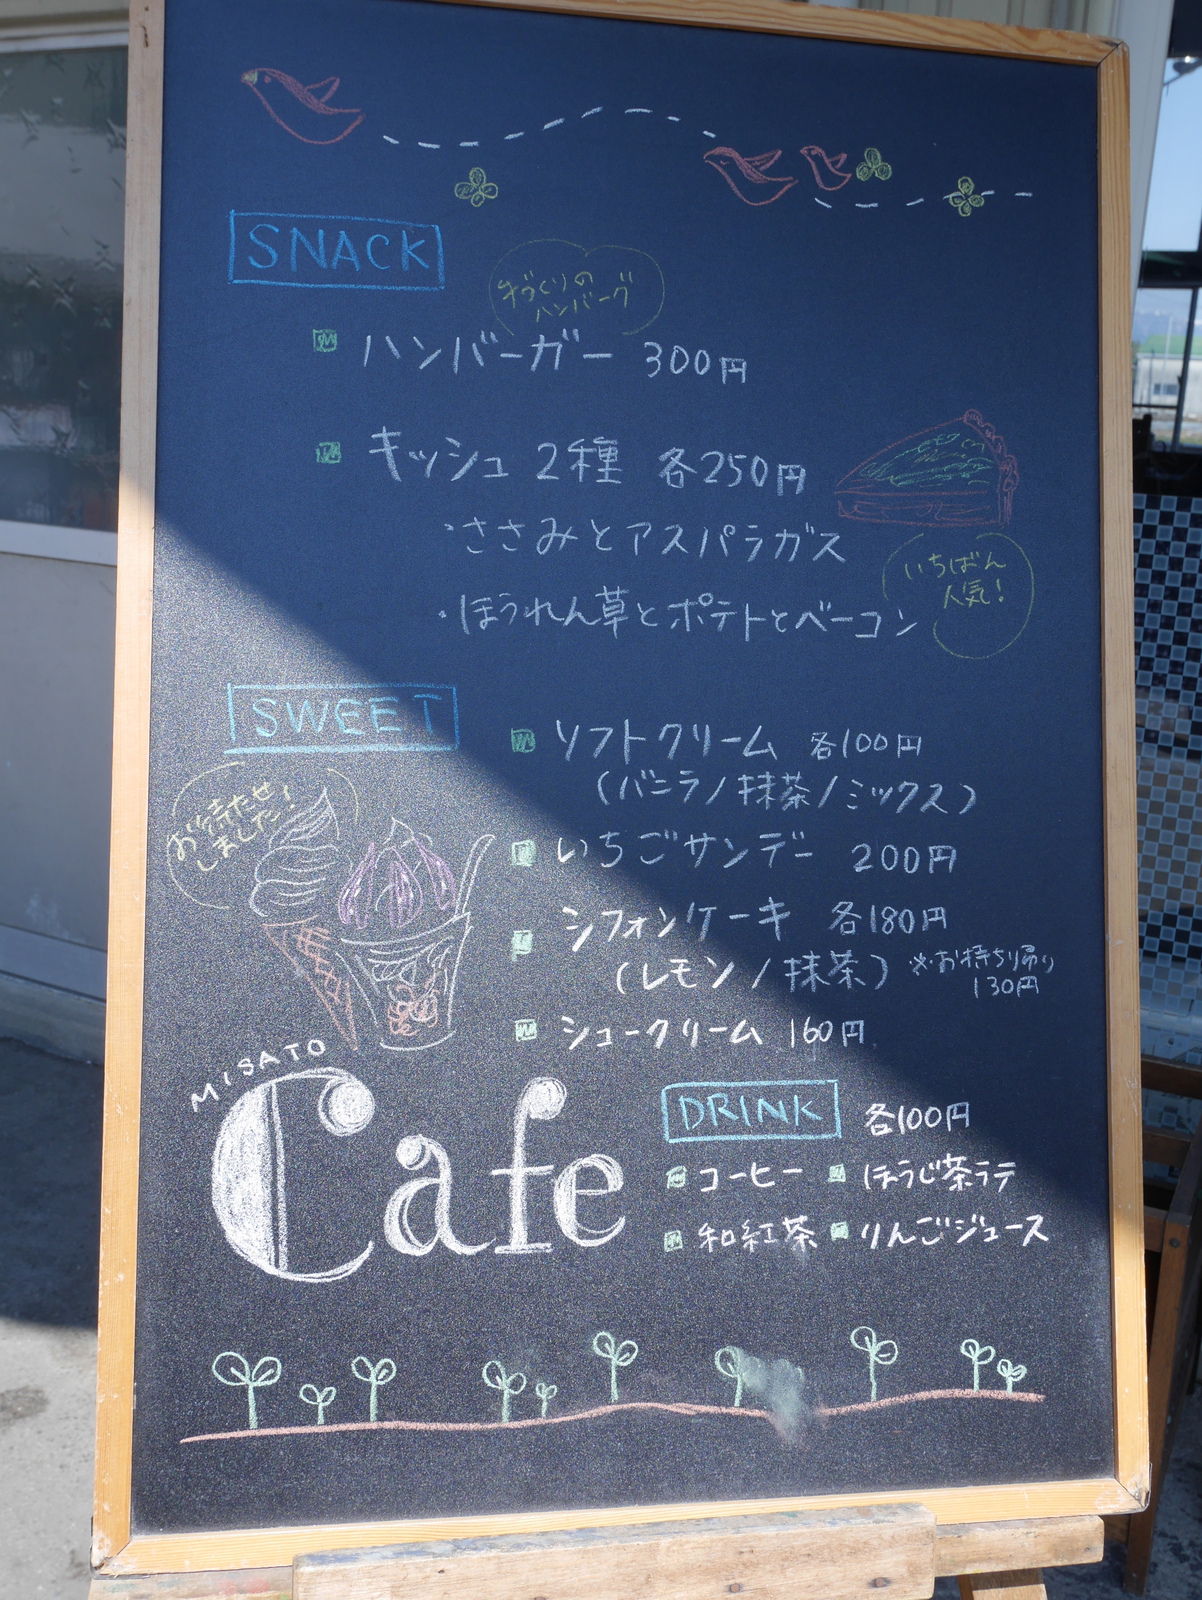 SNACK
手づくりの
ハンバーグ
ハンバーガー 300円
キッシュ 2種 各250円
・ささみとアスパラガス
・ほうれん草とポテトとベーコン
いちばん
人気!
SWEET
お待たせ
しました!
ソフトクリーム 各100円
(バニラ/抹茶/ミックス)
いちごサンデー 200円
シフォンケーキ 各180円
(レモン/抹茶) ※お持ち帰り
130円
シュークリーム 160円
MISATO
Cafe
DRINK 各100円
コーヒー ほうじ茶ラテ
和紅茶 りんごジュース